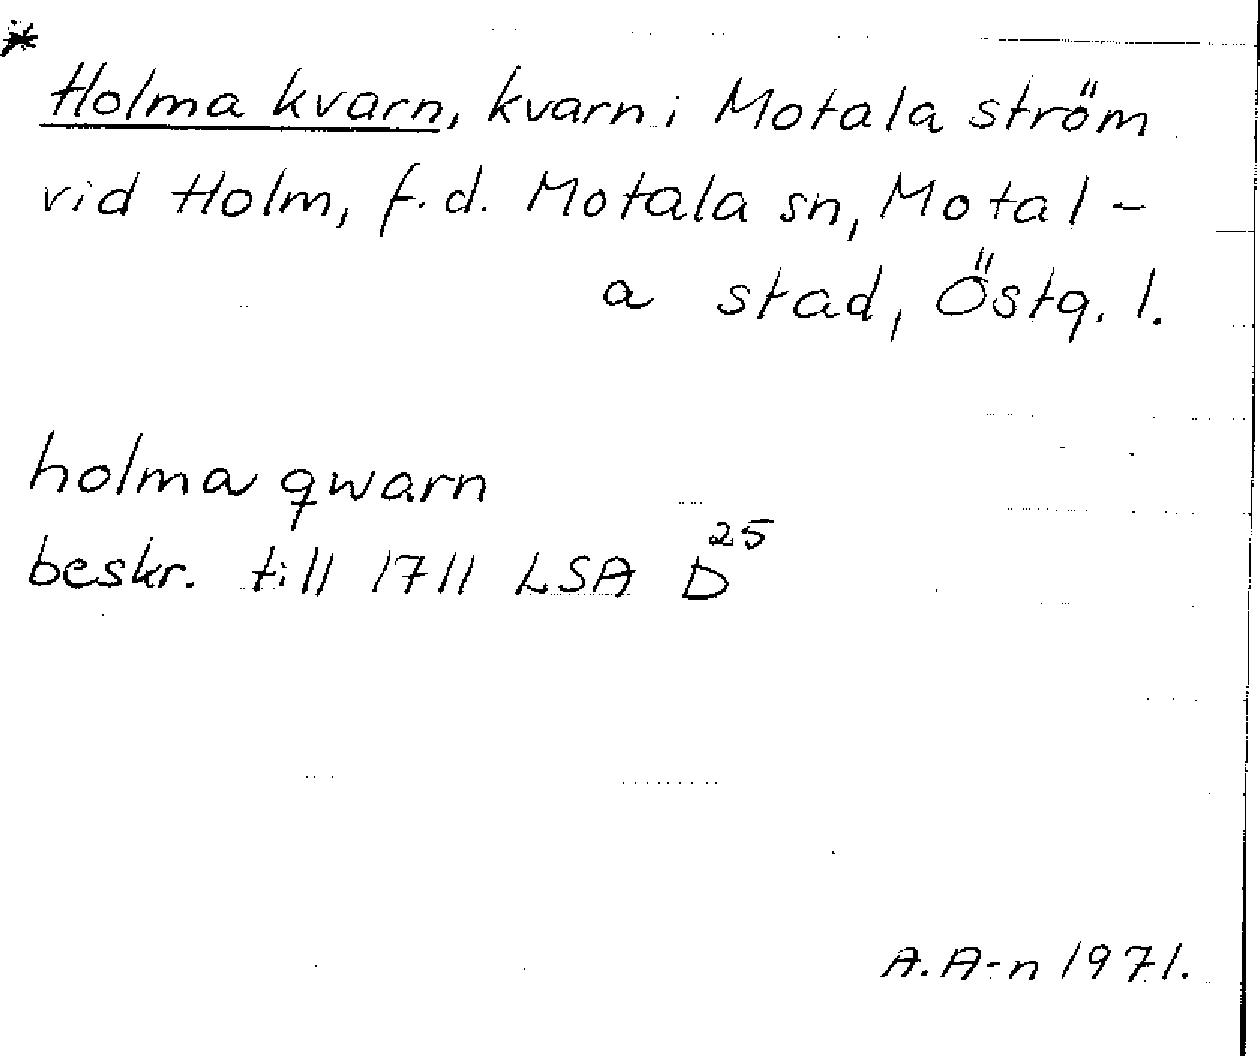 *
Holma kvarn, kvarn i Motala ström
vid Holm, f.d. Motala sn, Motal-
a stad, Östg. l.
holma qwarn
beskr. till 1711 LSA D25
A. A-n 1971.